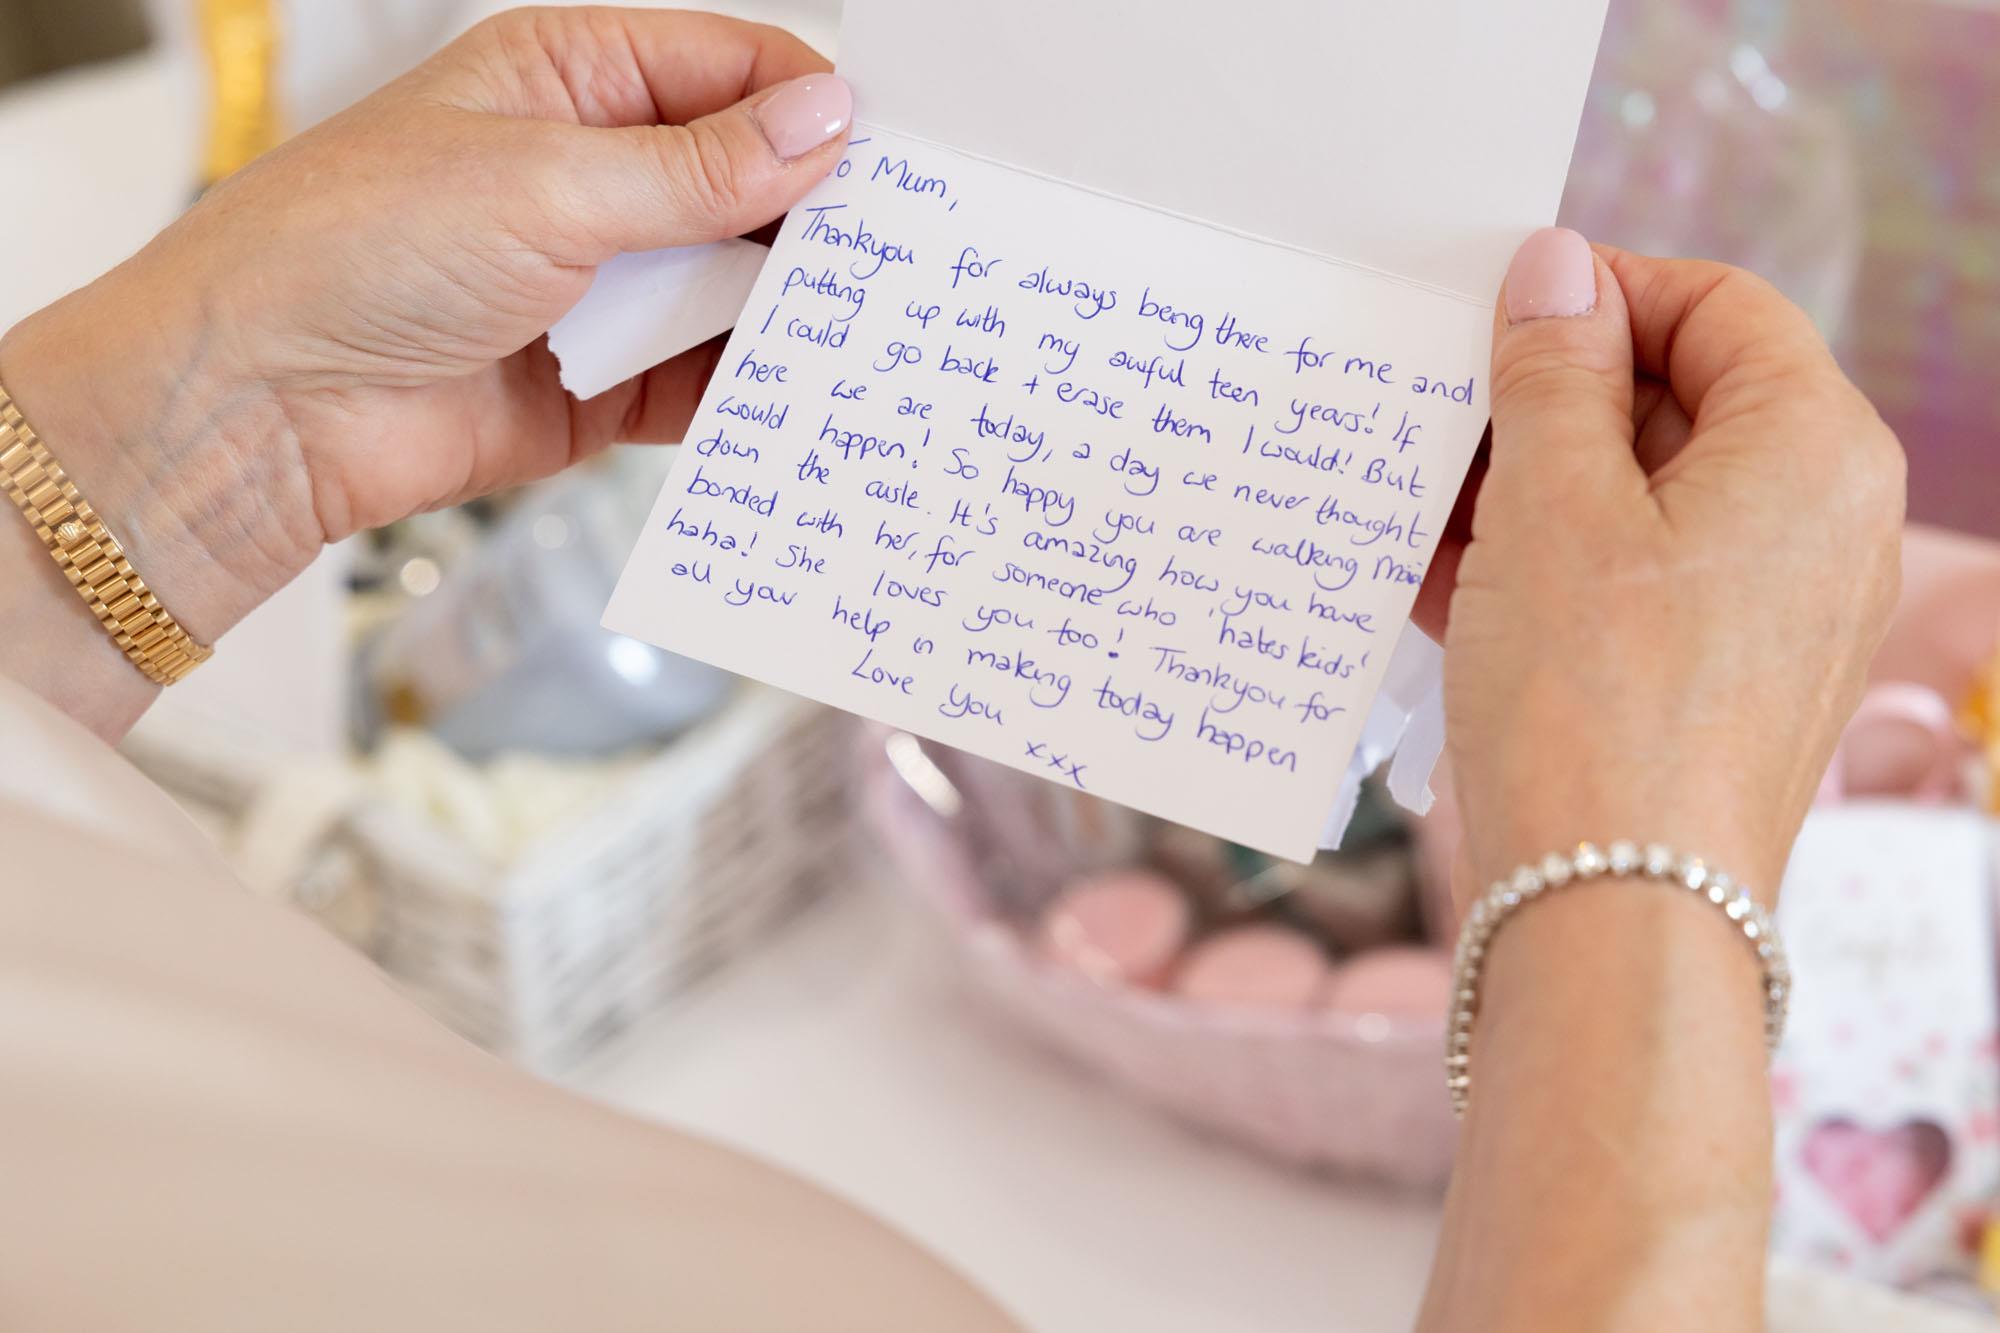 To Mum,
Thankyou for always being there for me and
putting up with my awful teen years! If
I could go back + erase them I would! But
here we are today, a day we never thought
would happen! So happy you are walking Maia
down the aisle. It's amazing how you have
bonded with her, for someone who 'hates kids'
haha! She loves you too! Thankyou for
all your help in making today happen
Love you
xxx